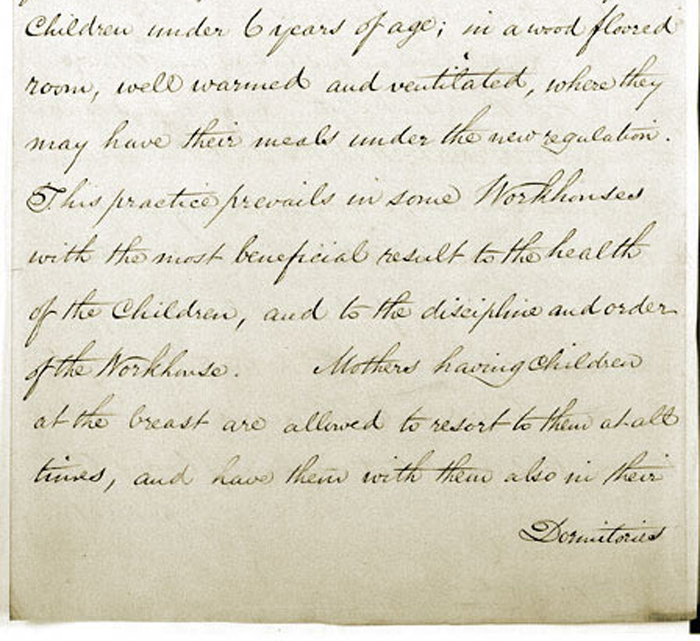 Children under 6 years of age; in a wood floored
room, well warmed and ventilated, where they
may have their meals under the new regulation.
This practice prevails in some Workhouses
with the most beneficial result to the health
of the Children, and to the discipline and order
of the Workhouse. Mothers having Children
at the breast are allowed to resort to them at all
times, and have them with them also in their
Dormitories